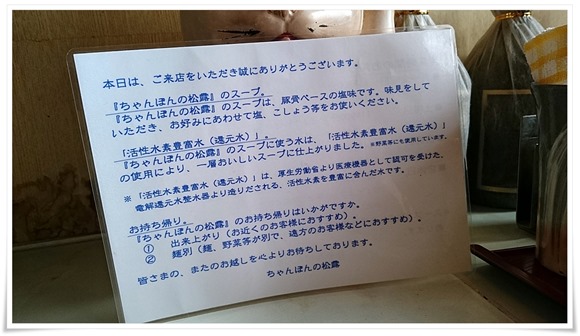 本日は、ご来店をいただき誠にありがとうございます。
『ちゃんぽんの松露』のスープ。
『ちゃんぽんの松露』のスープは、豚骨ベースの塩味です。味見をして
いただき、お好みにあわせて塩、こしょう等をお使いください。
「活性水素豊富水（還元水）」。
『ちゃんぽんの松露』のスープに使う水は、「活性水素豊富水（還元水）」
の使用により、一層おいしいスープに仕上がりました。※野菜等にも使用しています。
※「活性水素豊富水（還元水）」は、厚生労働省より医療機器として認可を受けた、
電解還元水整水器より造りだされる、活性水素を豊富に含んだ水です。
お持ち帰り。
『ちゃんぽんの松露』のお持ち帰りはいかがですか。
① 出来上がり（お近くのお客様におすすめ）。
② 麺別（麺、野菜等が別で、遠方のお客様などにおすすめ）。
皆さまの、またのお越しを心よりお待ちしております。
ちゃんぽんの松露